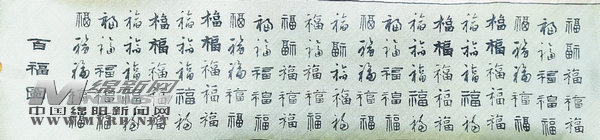 福福福福福福福福福福福福福福福福福福福福
福福福福福福福福福福福福福福福福福福福福
福福福福福福福福福福福福福福福福福福福福
福福福福福福福福福福福福福福福福福福福福
福福福福福福福福福福福福福福福福福福福福
百福圖
中国绵阳新闻网
WWW.MYRB.NET